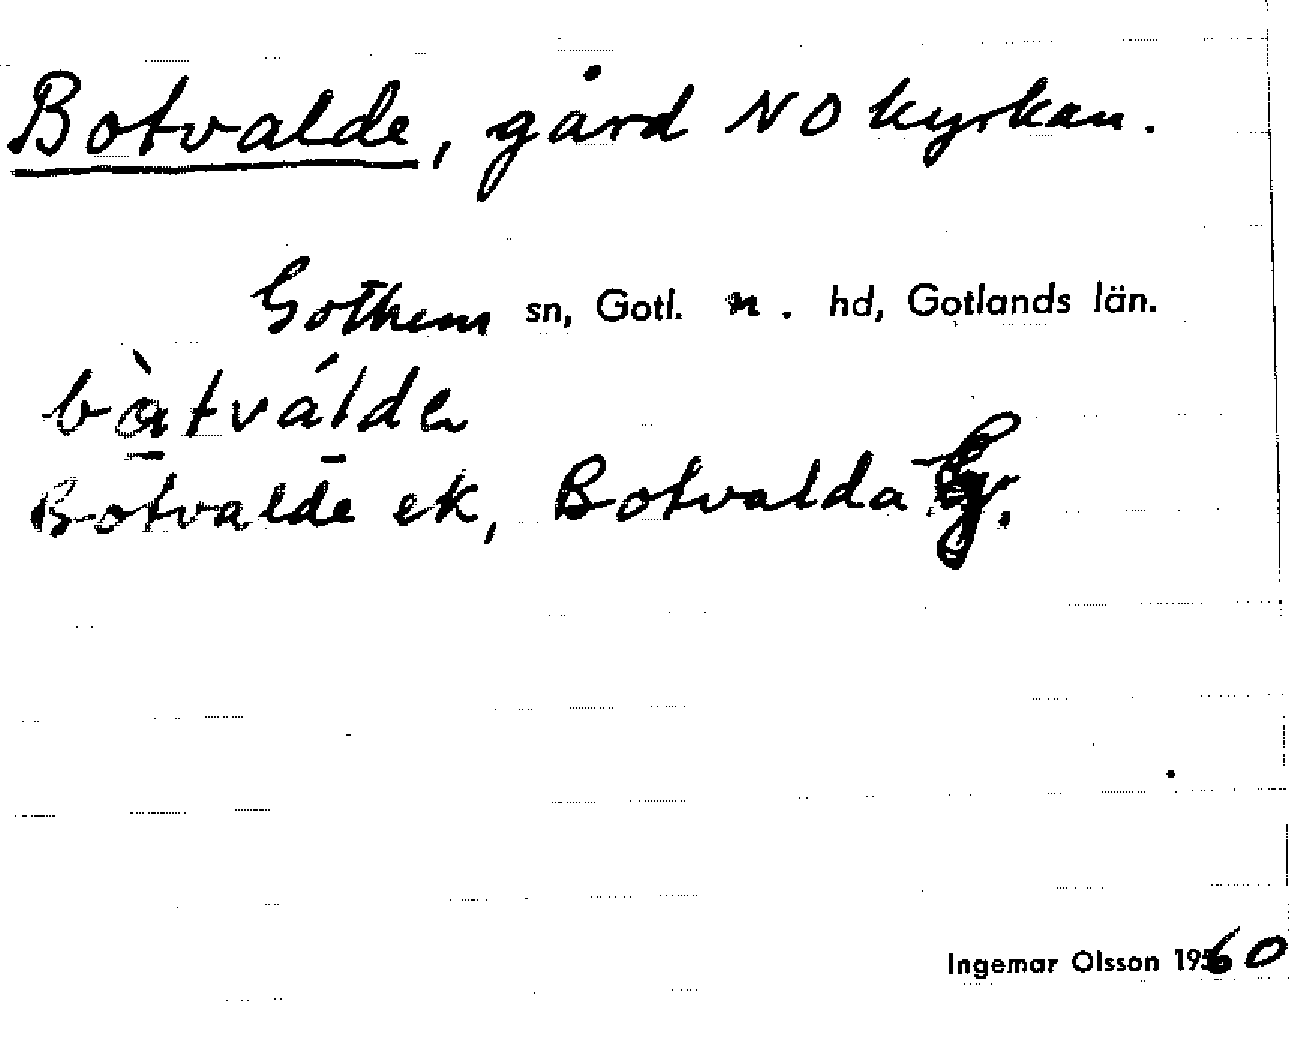 Botvalde, gård NO kyrkan.
Gothem sn, Gotl. n. hd, Gotlands län.
bàtválde
Botvalde ek, Botvalda
Ingemar Olsson 1960